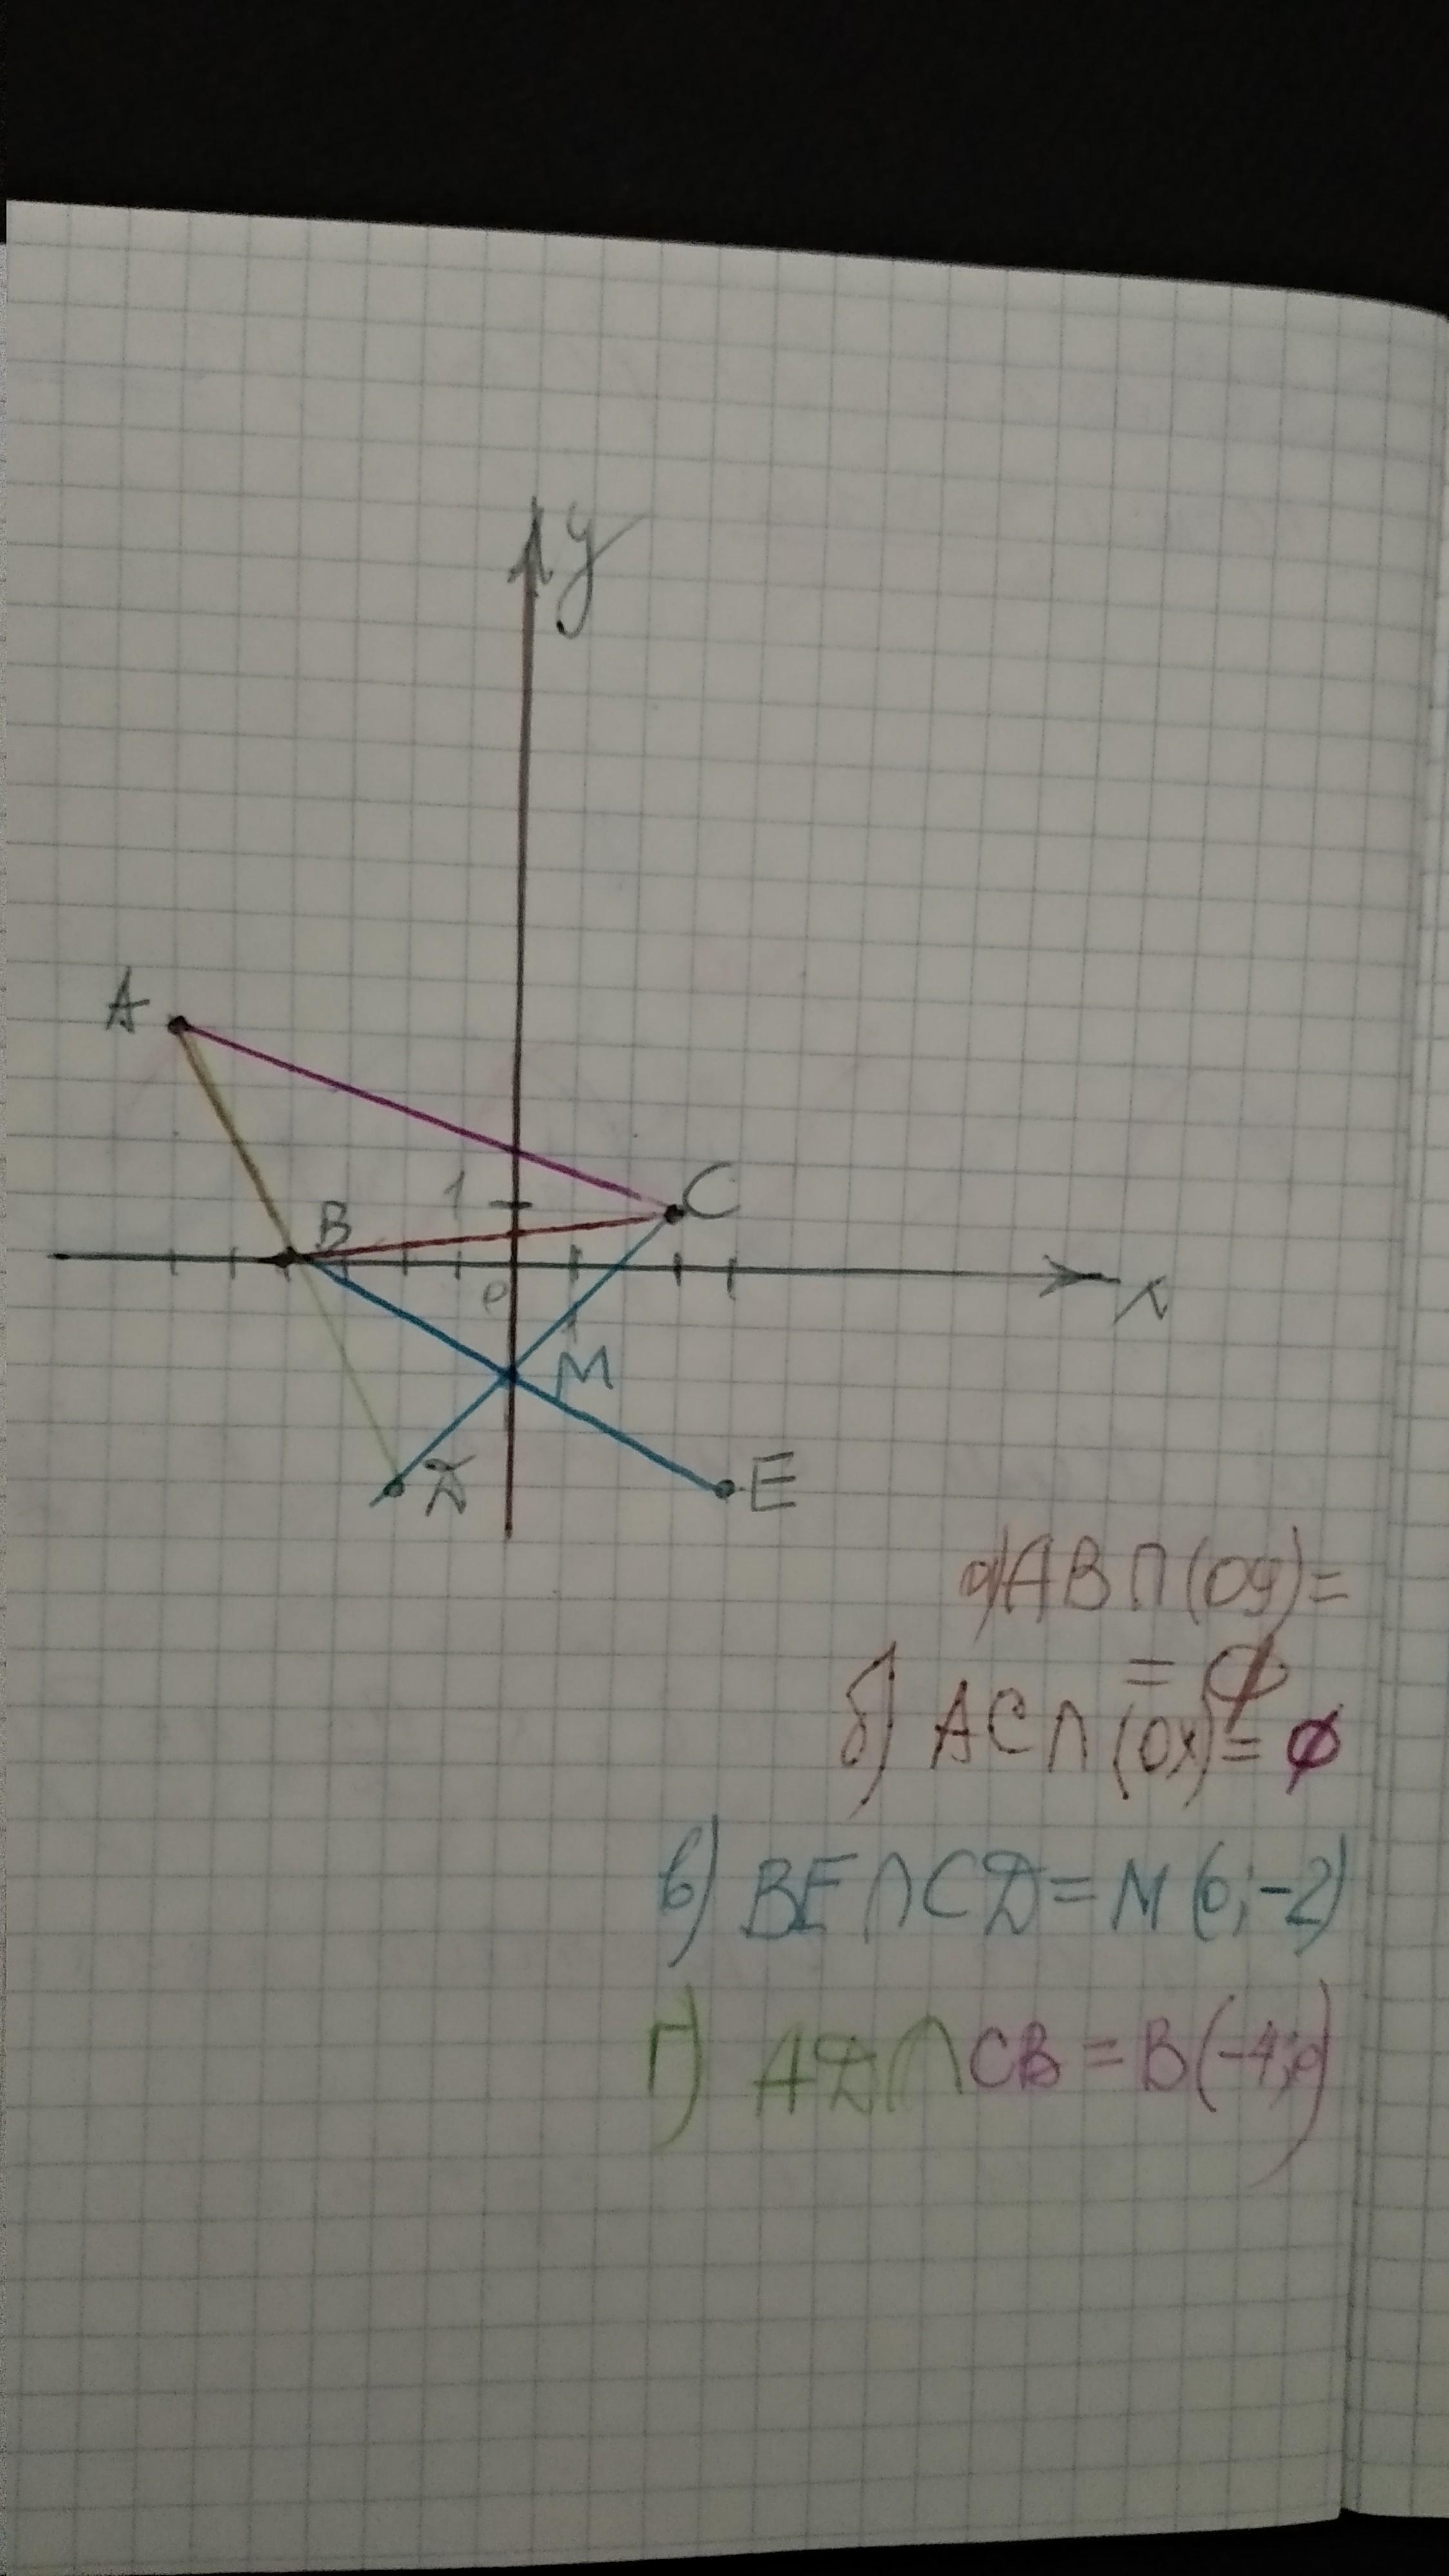 y
A
1
C
B
0
x
1
M
D
E
а) AB∩(Oy)=
= ∅
б) AC∩(Ox)= ∅
в) BE∩CD=M(0;-2)
г) AD∩CB=B(-4;0)